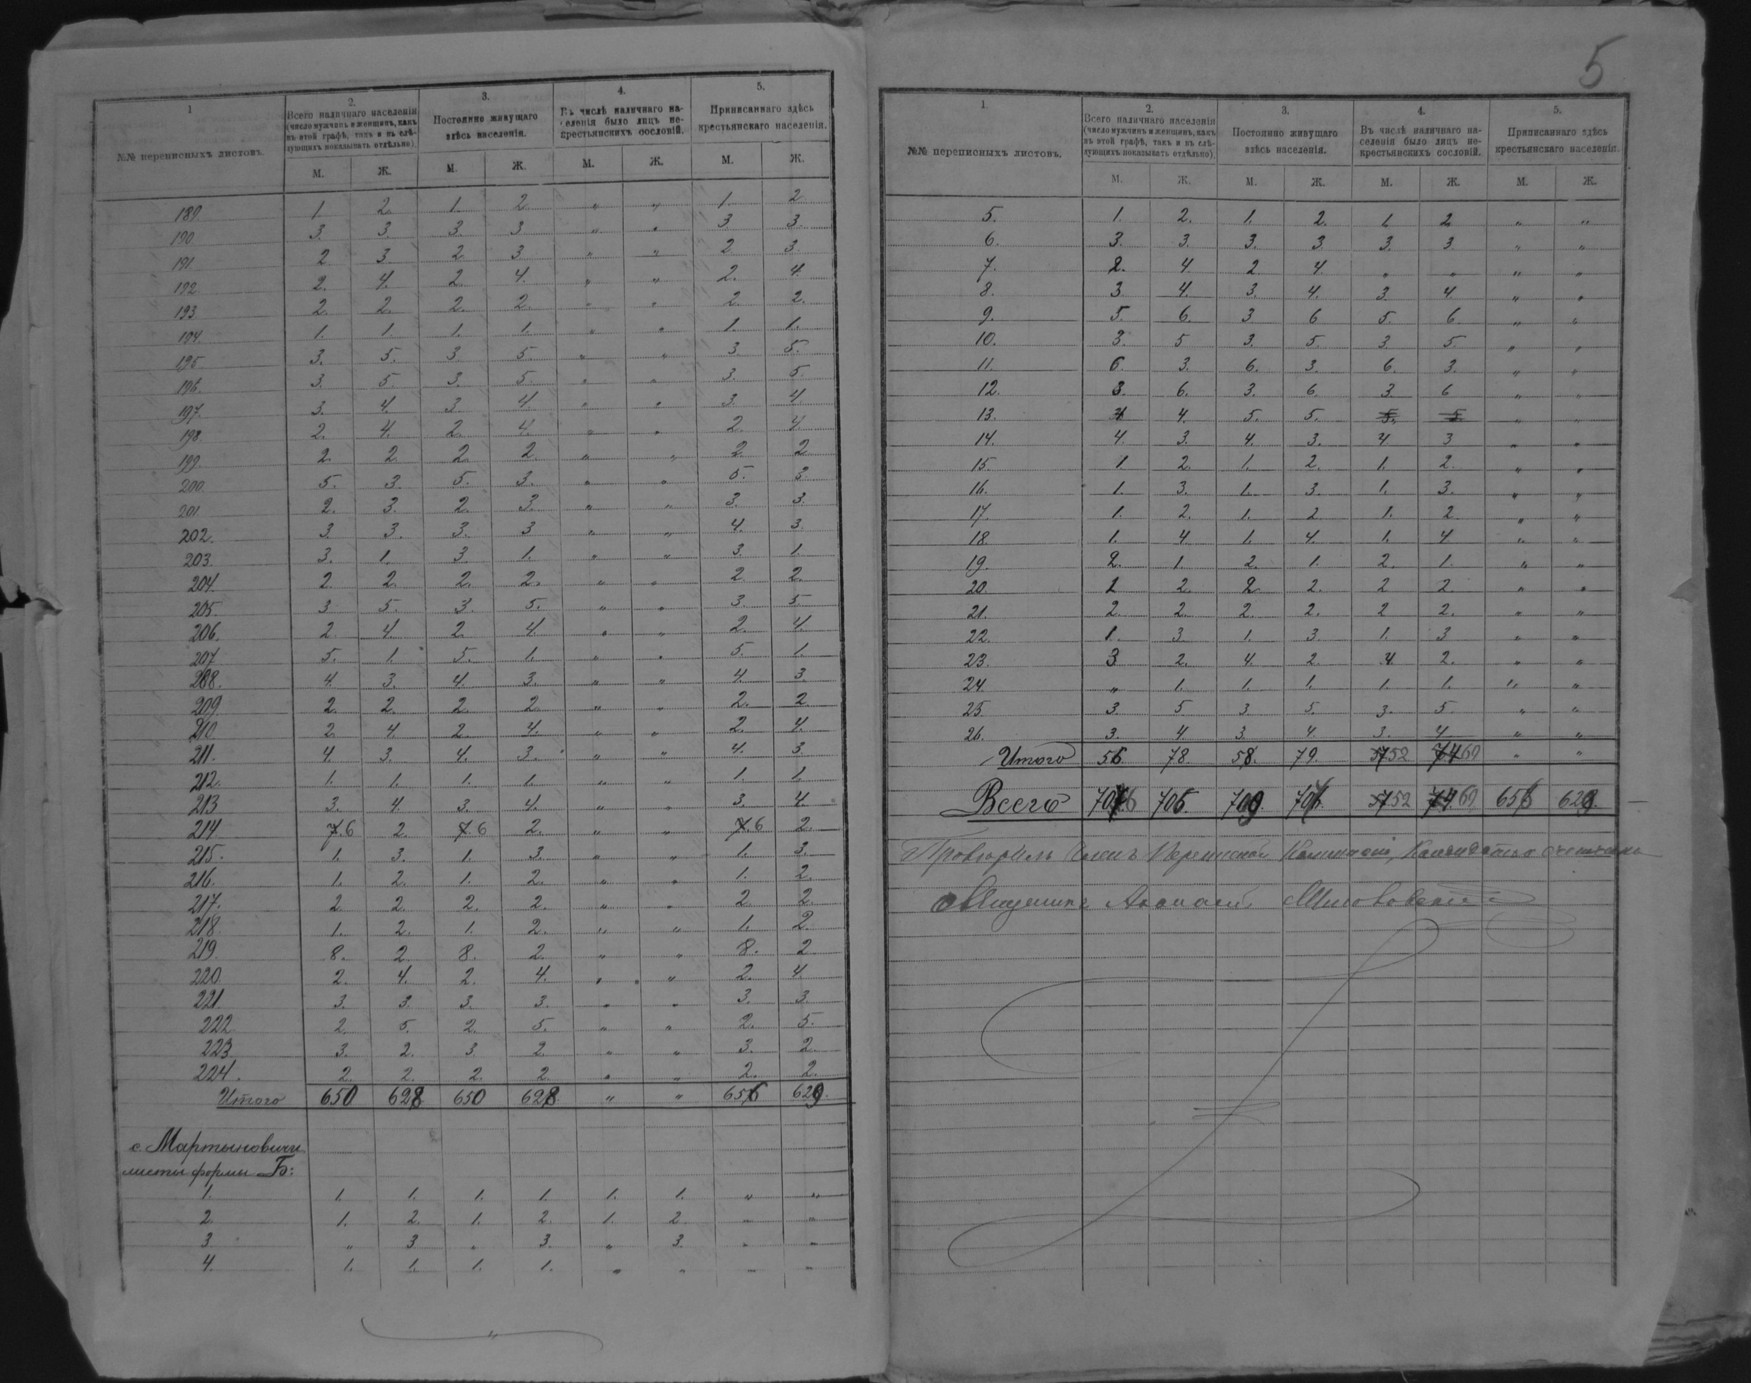 1
2.
Всего наличнаго населенія
(число мужчинъ и женщинъ, какъ
въ этой графѣ, такъ и въ слѣ-
дующихъ показывать отдѣльно).
3.
Постоянно живущаго
здѣсь населенія.
4.
Въ числѣ наличнаго на-
селенія было лицъ не-
крестьянскихъ сословій.
5.
Приписаннаго здѣсь
крестьянскаго населенія.
№№ переписныхъ листовъ.
М. Ж. М. Ж. М. Ж. М. Ж.
189. 1. 2. 1. 2. " " 1. 2
190 3. 3. 3. 3 " " 3 3.
191 2 3. 2. 3. " " 2. 3.
192 2. 4. 2. 4. " " 2. 4.
193 2. 2. 2. 2. " " 2. 2.
194. 1. 1. 1. 1. " " 1. 1.
195 3. 5. 3. 5. " " 3. 5.
196. 3. 5. 3. 5. " " 3. 5.
197. 3. 4. 3. 4. " " 3. 4
198. 2. 4. 2. 4. " " 2. 4.
199. 2. 2 2. 2. " " 2. 2
200. 5. 3. 5. 3. " " 5. 3
201. 2. 3. 2. 3. " " 3. 3.
202. 3 3. 3. 3 " " 4. 3
203. 3. 1. 3 1. " " 3. 1.
204. 2. 2. 2. 2. " " 2 2.
205. 3 5. 3. 5. " " 3. 5.
206. 2. 4. 2. 4. " " 2. 4.
207 5. 1. 5. 1. " " 5. 1.
288. 4. 3. 4. 3. " " 4. 3
209 2. 2. 2 2 " " 2. 2
210. 2. 4. 2. 4. " " 2. 4.
211. 4. 3. 4. 3. " " 4. 3
212. 1. 1. 1. 1. " " 1. 1.
213 3. 4. 3. 4. " " 3. 4.
214 7.6 2. 7.6 2. " " 7.6 2.
215. 1. 3. 1. 3. " " 1. 3.
216. 1. 2. 1. 2. " " 1. 2.
217. 2 2. 2. 2. " " 2 2.
218. 1. 2. 1. 2. " " 1. 2.
219. 8. 2. 8. 2. " " 8. 2
220 2. 4. 2. 4. " " 2. 4.
221 3. 3. 3. 3. " " 3. 3.
222 2. 5. 2. 5. " " 2. 5.
223 3. 2. 3. 2. " " 3. 2.
224. 2. 2. 2. 2. " " 2. 2.
Итого 650 628 650 628 " " 656 629.
с Мартыновичи
листы формы Б:
1. 1. 1. 1. 1. 1. 1. " "
2. 1. 2. 1. 2. 1. 2. " "
3 " 3. " 3. " 3. " "
4. 1. 1. 1. 1. " " " "
5
1.
2.
Всего наличнаго населенія
(число мужчинъ и женщинъ, какъ
въ этой графѣ, такъ и въ слѣ-
дующихъ показывать отдѣльно).
3.
Постоянно живущаго
здѣсь населенія.
4.
Въ числѣ наличнаго на-
селенія было лицъ не-
крестьянскихъ сословій.
5.
Приписаннаго здѣсь
крестьянскаго населенія.
№№ переписныхъ листовъ.
М. Ж. М. Ж. М. Ж. М. Ж.
5. 1. 2. 1. 2. 1. 2. " "
6. 3. 3. 3. 3. 3. 3. " "
7. 2. 4. 2 4. " " " "
8. 3. 4. 3. 4. 3. 4. " "
9. 5. 6. 3 6 5. 6. " "
10. 3. 5 3. 5. 3 5 " "
11. 6. 3. 6. 3. 6. 3. " "
12. 3. 6. 3. 6. 3. 6 " "
13. 4 4. 5. 5. 5. 5 " "
14. 4. 3. 4. 3. 4 3 " "
15. 1. 2. 1. 2. 1. 2. " "
16. 1. 3. 1. 3. 1. 3. " "
17. 1. 2. 1. 2 1. 2 " "
18. 1. 4 1. 4. 1. 4 " "
19 2. 1. 2. 1. 2. 1. " "
20. 2 2. 2. 2. 2 2. " "
21. 2. 2. 2. 2. 2 2. " "
22. 1. 3 1. 3. 1. 3 " "
23. 3 2. 4. 2. 4 2. " "
24. " 1. 1. 1. 1. 1. " "
25. 3. 5 3. 5. 3. 5 " "
26. 3. 4 3. 4. 3. 4 " "
Итого 56. 78. 58. 79. 57 52 74 60 " "
Всего 706 706. 709. 57 52 74 60 656 629.
Членъ Переписной Коммисіи,